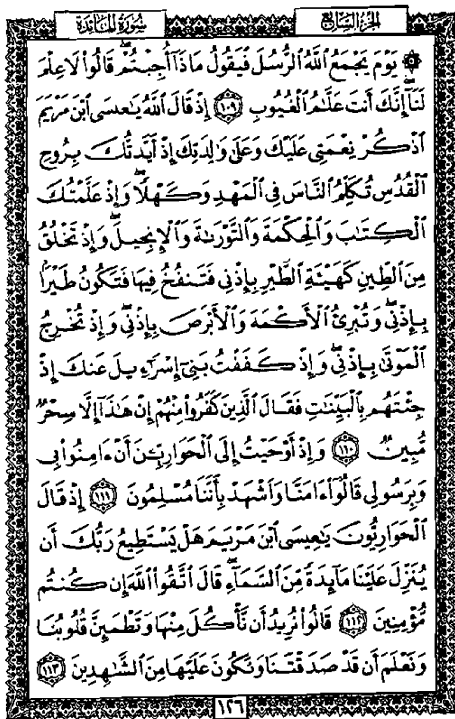 سُورَةُ المَائدَة
الجُزءُ السَّابِع
۞ يَوْمَ يَجْمَعُ اللَّهُ الرُّسُلَ فَيَقُولُ مَاذَا أُجِبْتُمْ ۖ قَالُوا لَا عِلْمَ
لَنَا ۖ إِنَّكَ أَنتَ عَلَّامُ الْغُيُوبِ ١٠٩ إِذْ قَالَ اللَّهُ يَاعِيسَى ابْنَ مَرْيَمَ
اذْكُرْ نِعْمَتِي عَلَيْكَ وَعَلَىٰ وَالِدَتِكَ إِذْ أَيَّدتُّكَ بِرُوحِ
الْقُدُسِ تُكَلِّمُ النَّاسَ فِي الْمَهْدِ وَكَهْلًا ۖ وَإِذْ عَلَّمْتُكَ
الْكِتَابَ وَالْحِكْمَةَ وَالتَّوْرَاةَ وَالْإِنجِيلَ ۖ وَإِذْ تَخْلُقُ
مِنَ الطِّينِ كَهَيْئَةِ الطَّيْرِ بِإِذْنِي فَتَنفُخُ فِيهَا فَتَكُونُ طَيْرًا
بِإِذْنِي ۖ وَتُبْرِئُ الْأَكْمَهَ وَالْأَبْرَصَ بِإِذْنِي ۖ وَإِذْ تُخْرِجُ
الْمَوْتَىٰ بِإِذْنِي ۖ وَإِذْ كَفَفْتُ بَنِي إِسْرَاءِيلَ عَنكَ إِذْ
جِئْتَهُم بِالْبَيِّنَاتِ فَقَالَ الَّذِينَ كَفَرُوا مِنْهُمْ إِنْ هَٰذَا إِلَّا سِحْرٌ
مُّبِينٌ ١١٠ وَإِذْ أَوْحَيْتُ إِلَى الْحَوَارِيِّينَ أَنْ ءَامِنُوا بِي
وَبِرَسُولِي قَالُوا ءَامَنَّا وَاشْهَدْ بِأَنَّنَا مُسْلِمُونَ ١١١ إِذْ قَالَ
الْحَوَارِيُّونَ يَاعِيسَى ابْنَ مَرْيَمَ هَلْ يَسْتَطِيعُ رَبُّكَ أَن
يُنَزِّلَ عَلَيْنَا مَائِدَةً مِّنَ السَّمَاءِ ۖ قَالَ اتَّقُوا اللَّهَ إِن كُنتُم
مُّؤْمِنِينَ ١١٢ قَالُوا نُرِيدُ أَن نَّأْكُلَ مِنْهَا وَتَطْمَئِنَّ قُلُوبُنَا
وَنَعْلَمَ أَن قَدْ صَدَقْتَنَا وَنَكُونَ عَلَيْهَا مِنَ الشَّاهِدِينَ ١١٣
١٢٦